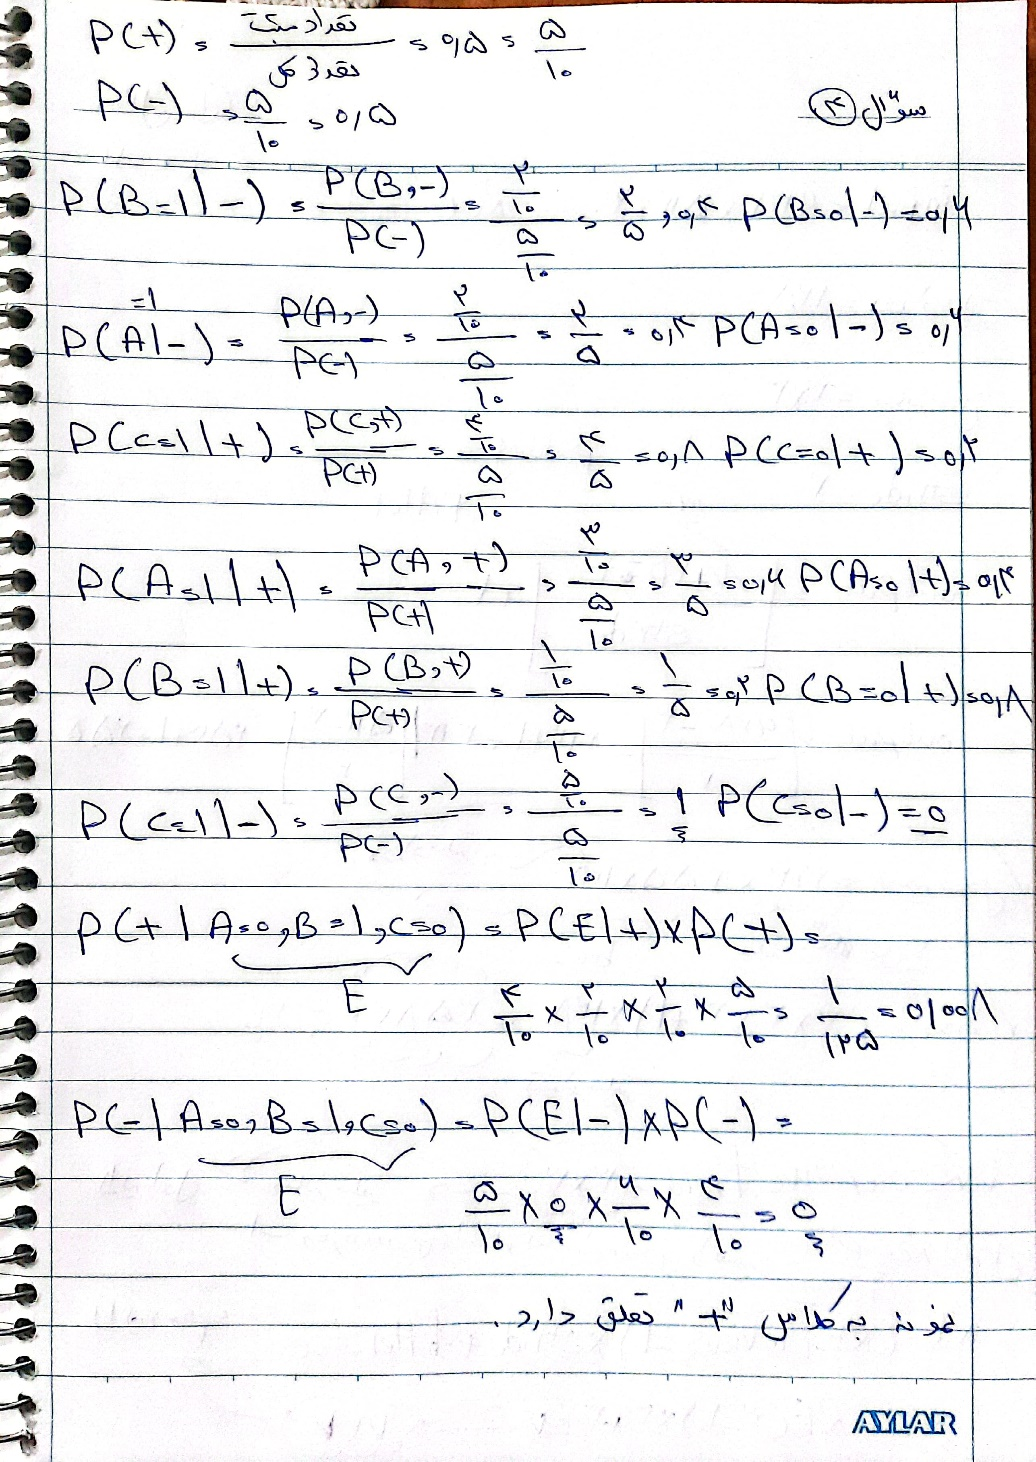 P(+) = تعداد مثبت / تعداد کل = ۰٫۵ = ۵/۱۰
سوال ۴
P(-) = ۵/۱۰ = ۰٫۵
P(B=1|-) = P(B,-)/P(-) = (۲/۱۰)/(۵/۱۰) = ۲/۵ = ۰٫۴ P(B=0|-) = ۰٫۶
P(A=1|-) = P(A,-)/P(-) = (۲/۱۰)/(۵/۱۰) = ۲/۵ = ۰٫۴ P(A=0|-) = ۰٫۶
P(C=1|+) = P(C,+)/P(+) = (۴/۱۰)/(۵/۱۰) = ۴/۵ = ۰٫۸ P(C=0|+) = ۰٫۲
P(A=1|+) = P(A,+)/P(+) = (۳/۱۰)/(۵/۱۰) = ۳/۵ = ۰٫۶ P(A=0|+) = ۰٫۴
P(B=1|+) = P(B,+)/P(+) = (۱/۱۰)/(۵/۱۰) = ۱/۵ = ۰٫۲ P(B=0|+) = ۰٫۸
P(C=1|-) = P(C,-)/P(-) = (۵/۱۰)/(۵/۱۰) = ۱ P(C=0|-) = ۰
P(+|A=0,B=1,C=0) = P(E|+)×P(+) =
E
۴/۱۰ × ۲/۱۰ × ۲/۱۰ × ۵/۱۰ = ۱/۱۲۵ = ۰٫۰۰۸
P(-|A=0,B=1,C=0) = P(E|-)×P(-) =
E
۵/۱۰ × ۰ × ۶/۱۰ × ۴/۱۰ = ۰
نمونه به کلاس "+" تعلق دارد.
AYLAR